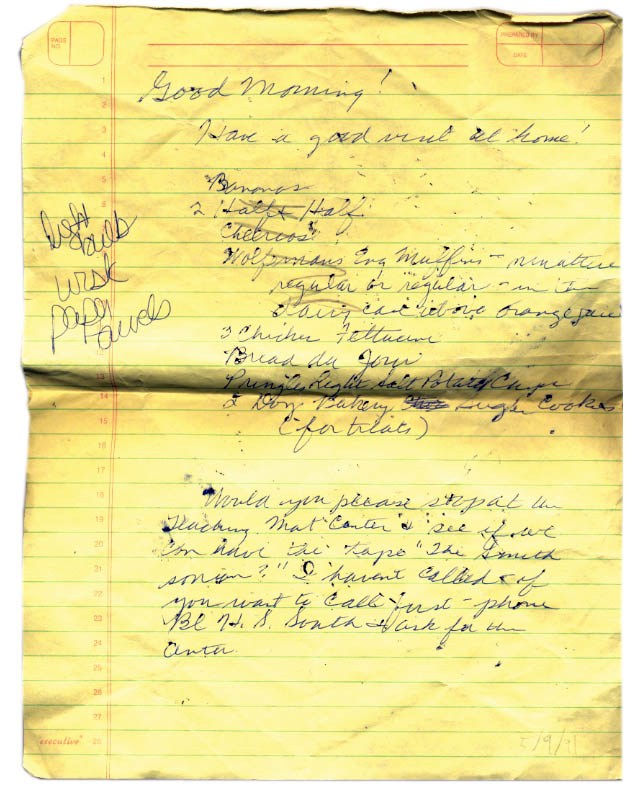 PAGE NO.
PREPARED BY
DATE
Good Morning!
Have a good visit at home!
Bananas
2 Half & Half
Cheerios
Wolfermans Eng Muffins - miniature
regular or regular - in the
dairy case above orange juice
3 Chicken Fettucine
Bread du Jour
Pringles Light Salt Potato Chips
2 Doz Bakery Sugar Cookies
(for treats)
light bulbs
wisk
paper towels
Would you please stop at the
Teaching Mat Center & see if we
can have the tape "The Smith
sonian?" I haven't called & if
you want to call first - phone
Bl H. S. South & ask for the
Center.
1
2
3
4
5
6
13
14
15
16
17
18
19
20
21
22
23
24
25
26
27
28
executive
5/9/91